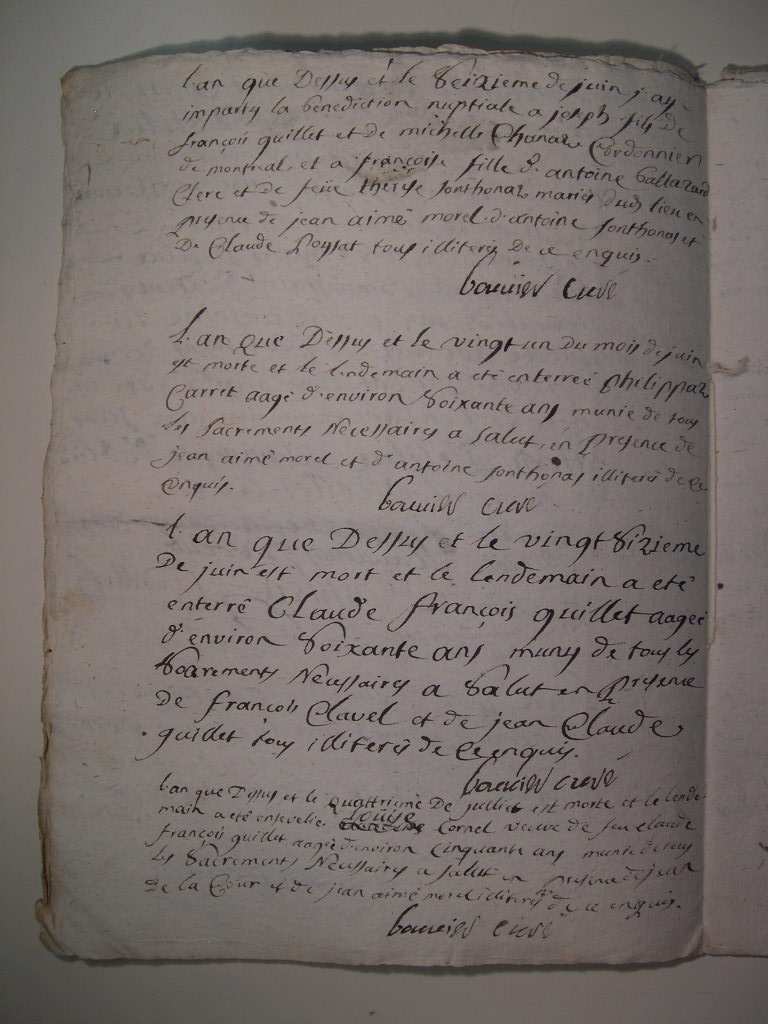 l'an que Dessus et le Seizieme de juin j'ay
imparty la benediction nuptiale a joseph fils de
françois quillet et de michelle Chanas Cordonnier
de montreal, et a françoise fille d'antoine ballazard
Clerc et de feüe therese fonthonas mariés dud. lieu en
presence de jean aimé morel d'antoine fonthonas et
De Claude Poysat tous illiterés De ce enquis.
bouvier Curé
l'an que Dessus et le vingt un Du mois de juin
est morte et le lendemain a eté enterreé philippaz
Carret aagé d'environ Soixante ans munie de tous
les Sacrements Necessaires a Salut, en presence de
jean aimé morel et d'antoine fonthonas illiterés de ce
Enquis.
bouvier Curé
l'an que Dessus et le vingt Sizieme
De juin est mort et le lendemain a eté
enterré Claude françois quillet aageé
d'environ Soixante ans muny de tous les
Sacrements Necessaires a Salut en presence
de françois Clavel et de jean Claude
quillet tous illiterés de ce enquis.
bouvier curé
l'an que Dessus et le quattrieme De juillet est morte et le lende
main a eté ensevelie louise Cornel veuve de feu claude
françois quillet aageé d'environ Cinquante ans munie de tous
les Sacrements Necessaires a salut en presence de jean
de la Cour et de jean aimé morel illiterés de ce enquis.
bouvier Curé